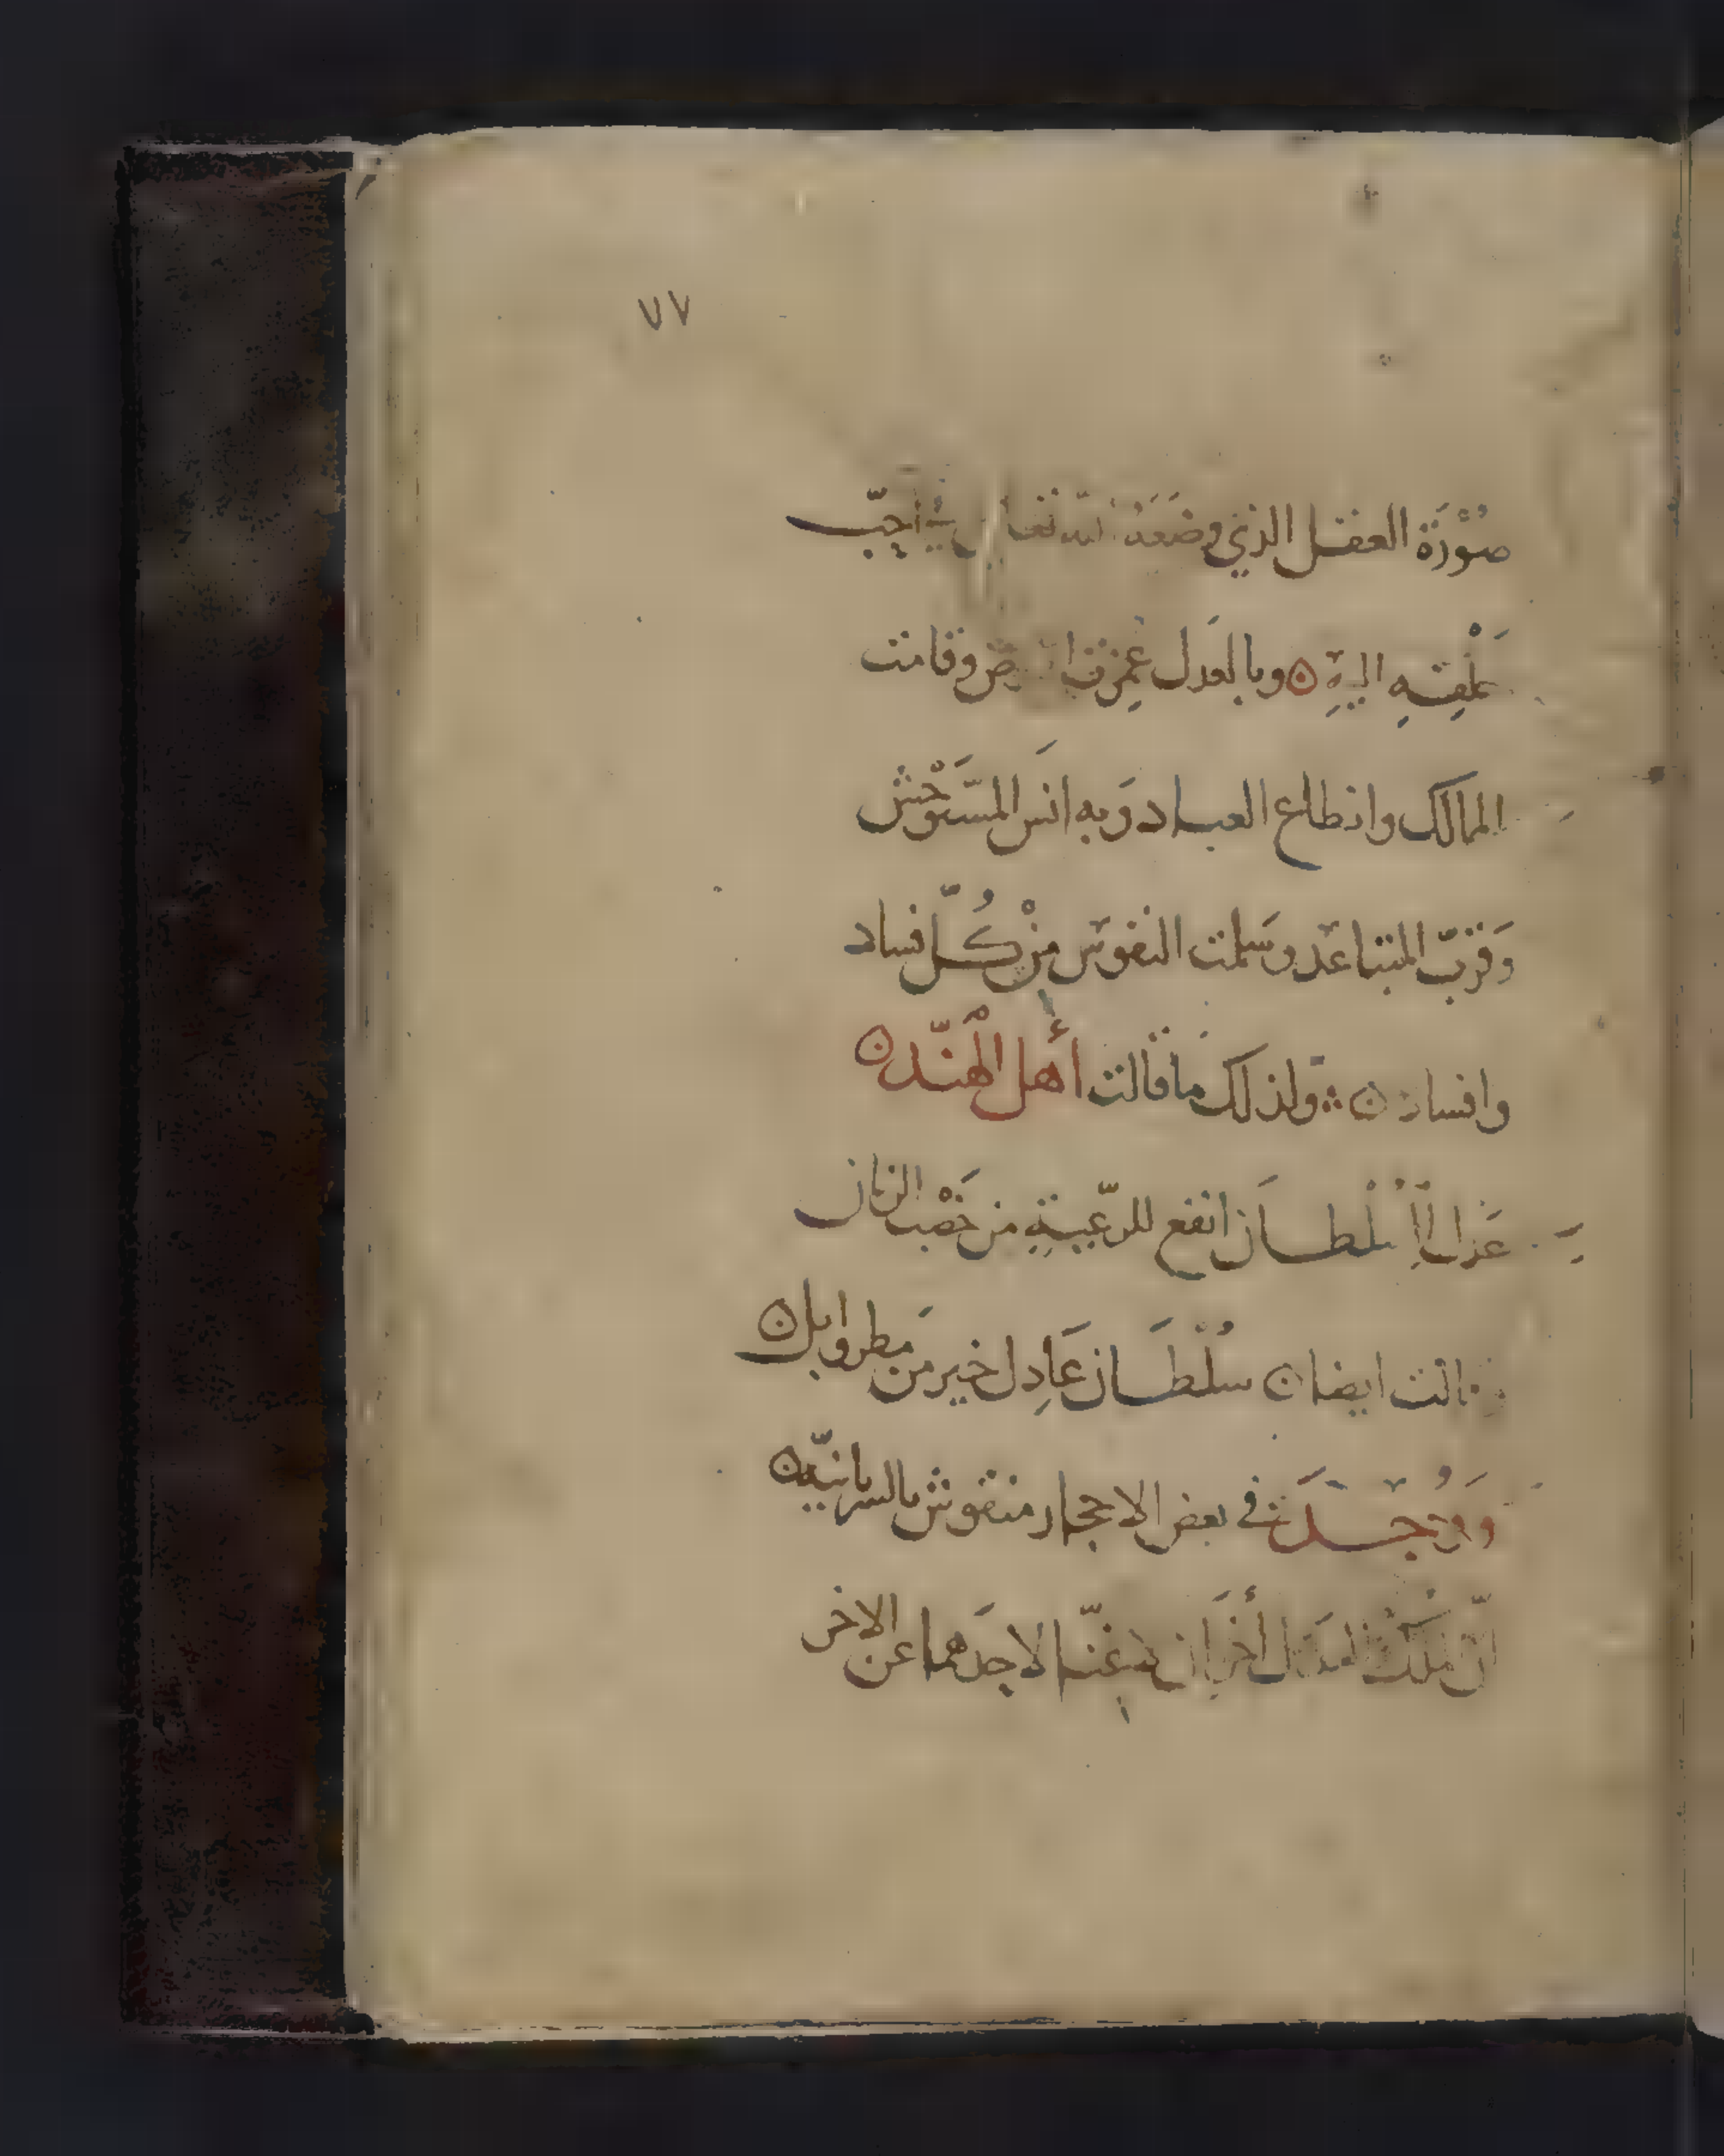 ٧٧
صُوْرَة العقل الذي وضعَهُ الله تعالى في أحبّ
خلْقِهِ اليهِ ه وبالعدل عمِرت الارض وقامت
الممالك وانطاع العباد وَبه انَس المسْتوْحَش
وَقرّب المتباعد وسَلمت النفوس منْ كُلّ فساد
وافساد ه ولذلك ما قالت أهل الهنْد ه
عَدل السُّلْطَان انفع للرّعيةِ من خَصْب الزمان
وقالت ايضا ه سُلْطَان عَادِل خير من مَطر وابل ه
وَوُجِدَ في بعض الاحجار منقوش بالسريانيّة ه
انّ الملْك والعدل أخوَان لا غنَا لاحَدهما عن الاخر